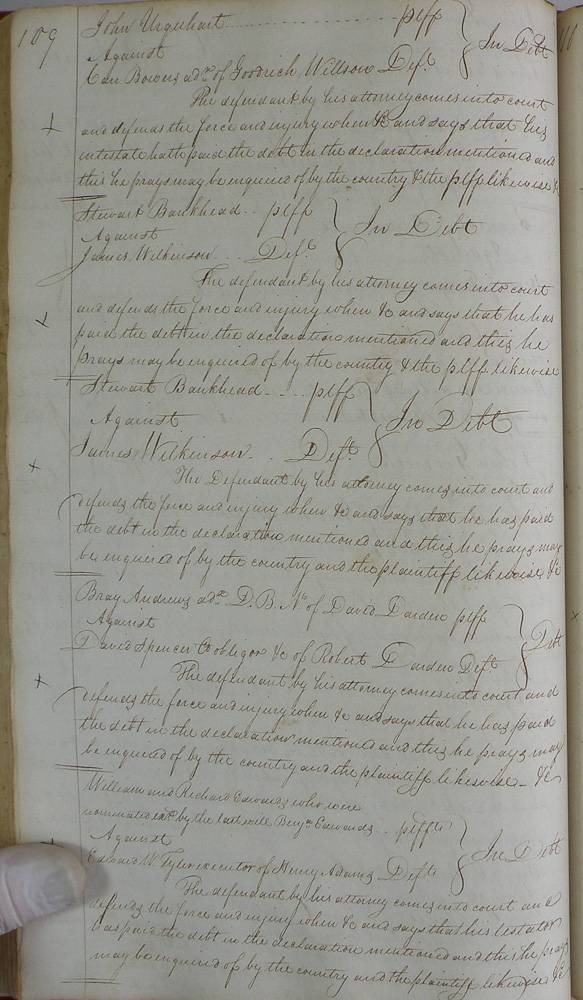 109
John Urquhart plff
Against In Debt
Car Bowers adr. of Goodrich Willson Deft.
The defendant by his attorney comes into court
and defends the force and injury when &c and says that his
intestate hath paid the debt in the declaration mentioned and
this he prays may be enquired of by the country & the plff likewise &c
Stewart Bankhead .. plff
Against In Debt
James Wilkinson ... Deft.
The defendant by his attorney comes into court
and defends the force and injury when &c and says that he has
paid the debt in the declaration mentioned and this he
prays may be enquired of by the country & the plff likewise
Stewart Bankhead .... plff
Against In Debt
James Wilkinson .. Deft.
The Defendant by his attorney comes into court and
defends the force and injury when &c and says that he has paid
the debt in the declaration mentioned and this he prays may
be enquired of by the country and the plaintiff likewise &c
Bray Andrews adr. D. B. N. of David Darden plff
Against Debt
David Spencer Cooblegor &c of Robert Darden Deft
The defendant by his attorney comes into court and
defends the force and injury when &c and says that he has paid
the debt in the declaration mentioned and this he prays may
be enquired of by the country and the plaintiff likewise - &c
William and Richard Edwards who were
nominated exrs by the last will Benja Edwards .. plffs
Against In Debt
Edward W. Tyler executor of Henry Adams Deft
The defendant by his attorney comes into court and
defends the force and injury when &c and says that his testator
has paid the debt in the declaration mentioned and this he prays
may be enquired of by the country and the plaintiff likewise &c